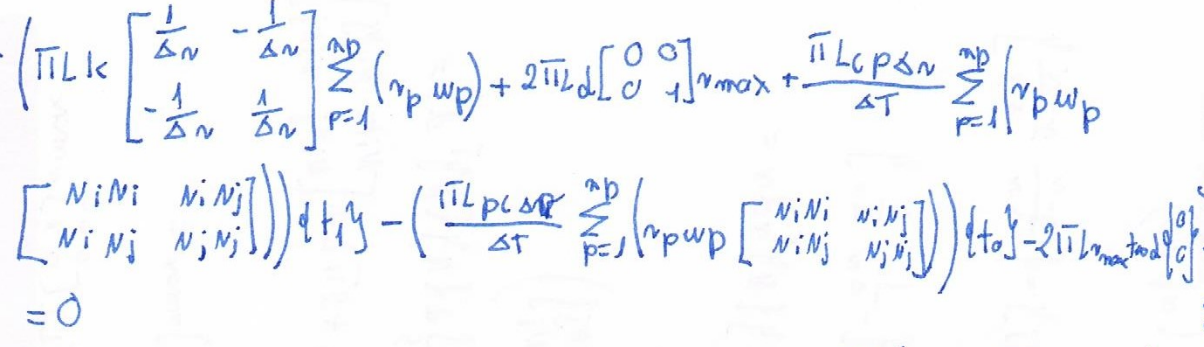 (πLk [1/Δr -1/Δr; -1/Δr 1/Δr] Σ_{p=1}^{np} (r_p w_p) + 2πLα[0 0; 0 1]rmax + πLcρΔr/ΔT Σ_{p=1}^{np} (r_p w_p
[NiNi NiNj; NiNj NjNj])){t₁} - (πLρcΔr/ΔT Σ_{p=1}^{np} (r_p w_p [NiNi NiNj; NiNj NjNj])){t₀} - 2πL r_max t∞ α {0; 0}
= 0